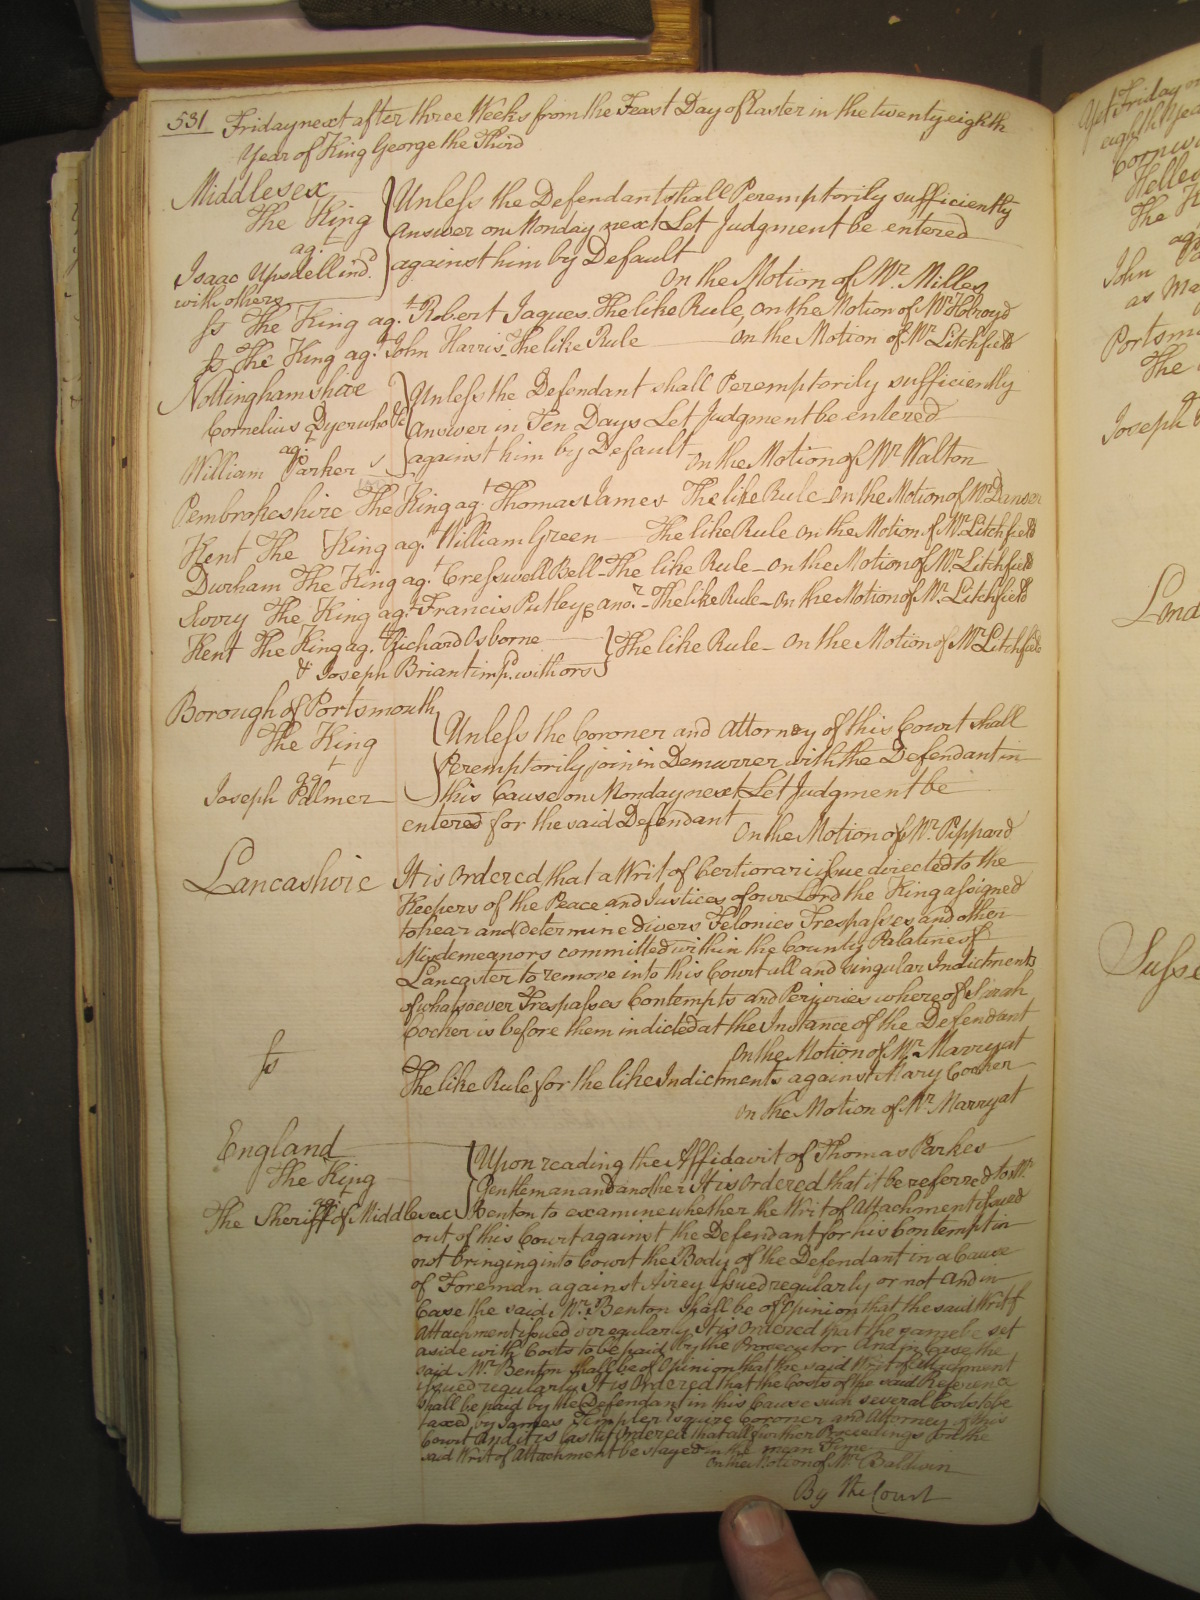 531 Friday next after three Weeks from the Feast Day of Easter in the twenty eighth
Year of King George the Third
Middlesex
The King
agt
Isaac Upsdell indd
with others
Unless the Defendant shall Peremptorily sufficiently
answer on Monday next Let Judgment be entered
against him by Default
On the Motion of Mr Milles
ss The King agt Robert Jaques The like Rule, On the Motion of Mr Holroyd
ss The King agt John Harris The like Rule On the Motion of Mr Litchfield
Nottinghamshire
Cornelius Dyer who &c
agt
William Parker
Unless the Defendant shall Peremptorily sufficiently
Answer in Ten Days Let Judgment be entered
against him by Default
On the Motion of Mr Walton
Pembrokeshire The King agt Thomas James The like Rule On the Motion of Mr
Kent The King agt William Green The like Rule On the Motion of Mr Litchfield
Durham The King agt Cresswell Bell The like Rule On the Motion of Mr Litchfield
Surry The King agt Francis Putley & anor The like Rule On the Motion of Mr Litchfield
Kent The King agt Richard Osborne
& Joseph Briant impd with ors
The like Rule On the Motion of Mr Litchfield
Borough of Portsmouth
The King
agt
Joseph Palmer
Unless the Coroner and Attorney of this Court shall
Peremptorily join in Demurrer with the Defendant in
this Cause on Monday next Let Judgment be
entered for the said Defendant
On the Motion of Mr Pippard
Lancashire
It is Ordered that a Writ of Certiorari issue directed to the
Keepers of the Peace and Justices of our Lord the King assigned
to hear and determine divers Felonies Trespasses and other
Misdemeanors committed within the County Palatine of
Lancaster to remove into this Court all and singular Indictments
of whatsoever Trespasses Contempts and Perjuries whereof Sarah
Cocker is before them indicted at the Instance of the Defendant
On the Motion of Mr Marryat
ss
The like Rule for the like Indictments against Mary Cocker
On the Motion of Mr Marryat
England
The King
agt
The Sheriff of Middlesex
Upon reading the Affidavit of Thomas Parkes
Gentleman and another It is Ordered that it be referred to Mr
Benton to examine whether the Writ of Attachment issued
out of this Court against the Defendant for his Contempt in
not bringing into Court the Body of the Defendant in a Cause
of Foreman against Airey issued regularly or not And in
Case the said Mr Benton shall be of Opinion that the said Writ of
Attachment issued irregularly It is Ordered that the same be set
aside with Costs to be paid by the Prosecutor And in case the
said Mr Benton shall be of Opinion that the said Writ of Attachment
issued regularly It is Ordered that the Costs of the said Reference
shall be paid by the Defendant in this Cause such several Costs to be
taxed by James Templer Esquire Coroner and Attorney of this
Court And it is lastly Ordered that all further Proceedings on the
said Writ of Attachment be stayed in the mean Time
On the Motion of Mr Baldwin
By the Court
Friday
John
as
Portsm
The
Joseph
Lond
Susse